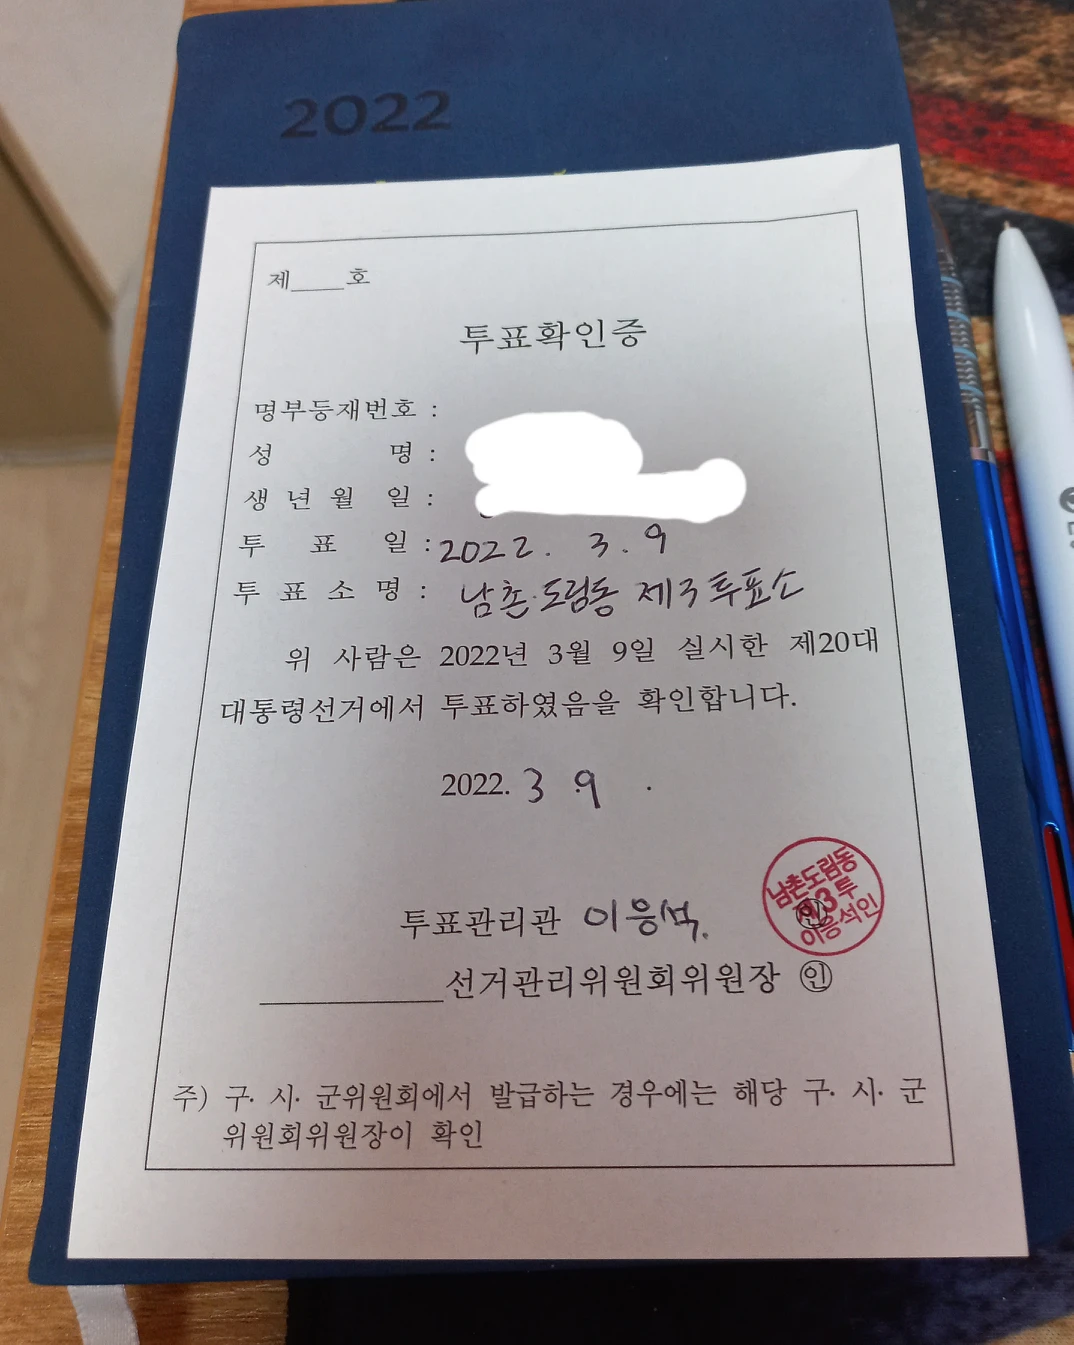 2022
제____호
투표확인증
명부등재번호 :
성 명 :
생 년 월 일 :
투 표 일 : 2022. 3. 9
투 표 소 명 : 남촌·도림동 제3투표소
위 사람은 2022년 3월 9일 실시한 제20대
대통령선거에서 투표하였음을 확인합니다.
2022. 3 9 .
남촌도림동
제3투
이응석인
투표관리관 이응석. ㊞
__________선거관리위원회위원장 ㊞
주) 구· 시· 군위원회에서 발급하는 경우에는 해당 구· 시· 군
위원회위원장이 확인